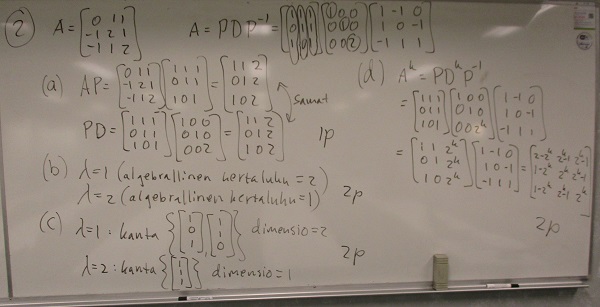 ② A = [0 1 1; -1 2 1; -1 1 2] A = PDP⁻¹ = [1 1 1; 0 1 1; 1 0 1] [1 0 0; 0 1 0; 0 0 2] [1 -1 0; 1 0 -1; -1 1 1]
(a) AP = [0 1 1; -1 2 1; -1 1 2] [1 1 1; 0 1 1; 1 0 1] = [1 1 2; 0 1 2; 1 0 2]
samat
PD = [1 1 1; 0 1 1; 1 0 1] [1 0 0; 0 1 0; 0 0 2] = [1 1 2; 0 1 2; 1 0 2] 1p
(b) λ=1 (algebrallinen kertaluku = 2)
λ=2 (algebrallinen kertaluku = 1) 2p
(c) λ=1: kanta {[1; 0; 1], [1; 1; 0]} dimensio = 2
2p
λ=2: kanta {[1; 1; 1]} dimensio = 1
(d) Aᵏ = PDᵏP⁻¹
= [1 1 1; 0 1 1; 1 0 1] [1 0 0; 0 1 0; 0 0 2ᵏ] [1 -1 0; 1 0 -1; -1 1 1]
= [1 1 2ᵏ; 0 1 2ᵏ; 1 0 2ᵏ] [1 -1 0; 1 0 -1; -1 1 1] = [2-2ᵏ 2ᵏ-1 2ᵏ-1; 1-2ᵏ 2ᵏ 2ᵏ-1; 1-2ᵏ 2ᵏ-1 2ᵏ]
2p